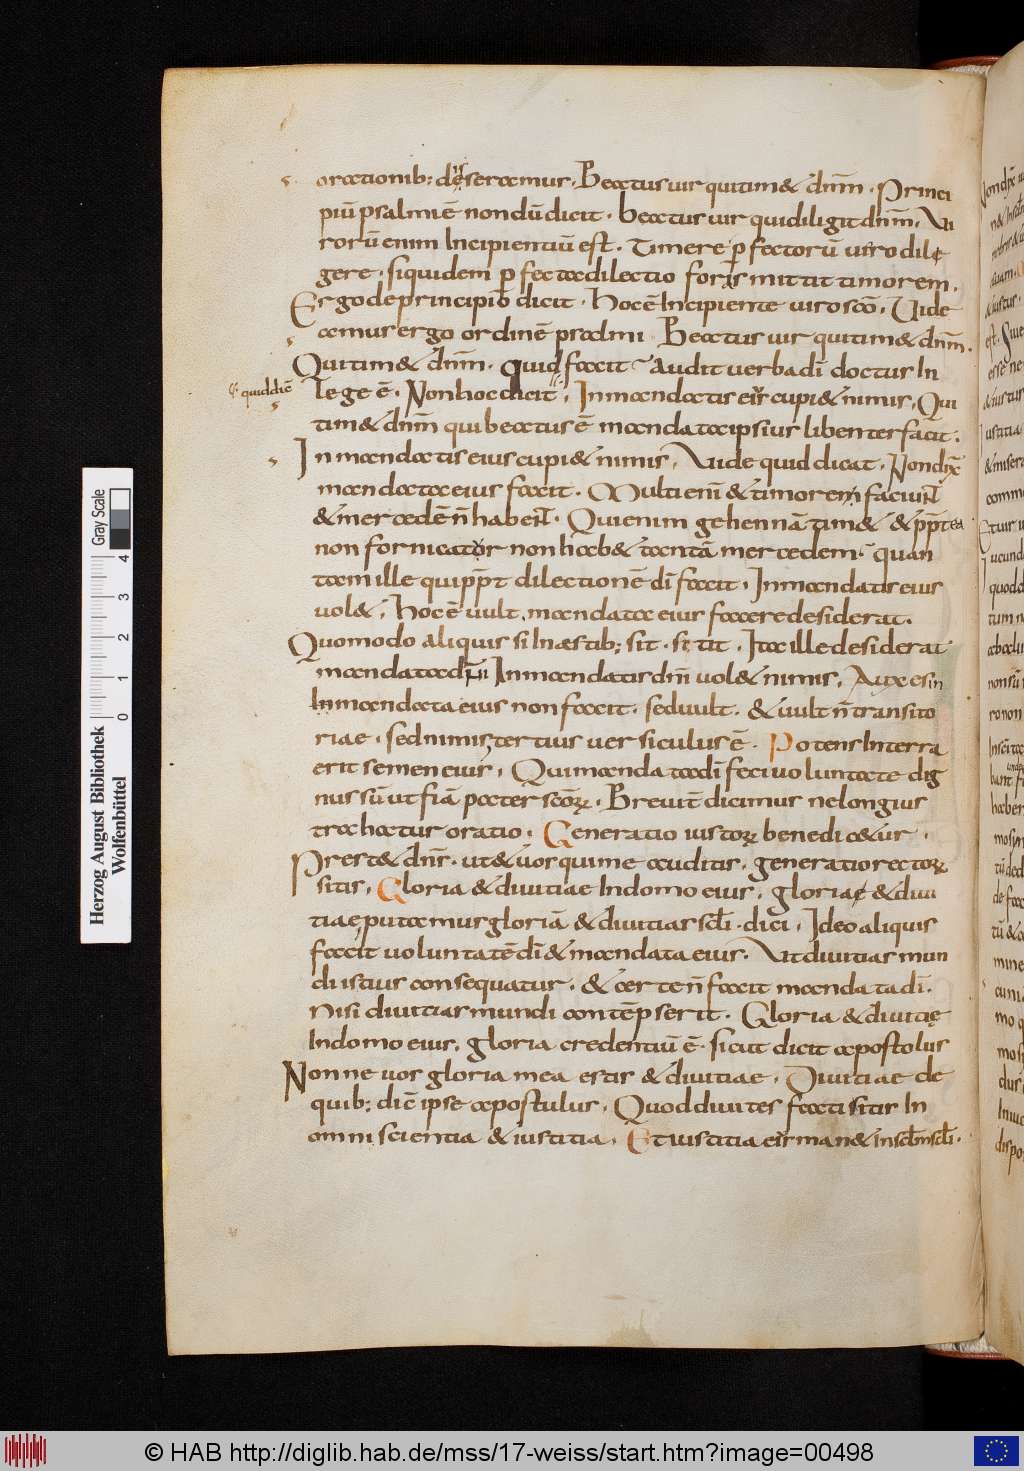 orationib; deseramur. Beatus uir qui tim& dnm̄. Princi
piū psalmi ē nondū dicit. beatus uir qui diligit dnm̄. Vi
rorū enim Incipientiū est. Timere ꝑfectorū uiro dilę
gere. siquidem ꝑfecta dilectio foris mittit timorem.
Ergo de principib dicit. hoc ē Incipiente uiro scō. Vide
amus ergo ordinē psalmi Beatus uir qui tim& dnm̄.
Qui tim& dnm̄. Quid facit audit uerba dī doctus In
ł quid dic̄
lege ē. Non hoc dicit. In mandatis ei' cupi& nimis. Qui
tim& dnm̄ qui beatus ē mandata ipsius libenter facit.
In mandatis eius cupi& nimis. Vide quid dicat. Non dix̄
mandata eius facit. Multi enī & timorem faciunt
& mercedē n̄ habent. Qui enim gehennā tim& & ꝓpterea
non fornicator non hab& tantā mercedem. quan
tam ille qui ꝓpt dilectionē dī facit. In mandatis eius
uol&. hoc ē uult. mandata eius facere desiderat.
Quomodo aliquis si In æstib; sit. sitit. Ita ille desiderat
mandata dnī In mandatis dnī uol& nimis.
In mandata eius non facit. sed uult. & uult n̄ transito
riae. sed nimis, tertius uersiculus ē. Potens In terra
erit semen eius. Qui mandata dī feci uoluntate dig
nus sū ut fiā pater scōrꝝ. Breuit̄ dicimus ne longius
trahatur oratio. Generatio iustorꝝ benedic&ur.
Prest& dnš. ut & uos qui me auditis. generatio rectorꝝ
sitis. Gloria & diuitiae In domo eius. gloriaę & diui
tiae putamus gloriā & diuitias sclī dici. Ideo aliquis
facit uoluntatē dī & mandata eius. Vt diuitias mun
di istius consequatur. & certe n̄ facit mandata dī.
Nisi diuitias mundi contēpserit. Gloria & diuitię
In domo eius. gloria credentiū ē. sicut dicit apostolus
Nonne uos gloria mea estis & diuitiae. Diuitiae de
quib; dic̄ ipse apostulus. Quod diuites facti sitis In
omni scientia & iustitia. Et iustitia ei' man& in sclm̄ sclī.
Herzog August Bibliothek
Wolfenbüttel
0 1 2 3 4
Gray Scale
© HAB http://diglib.hab.de/mss/17-weiss/start.htm?image=00498